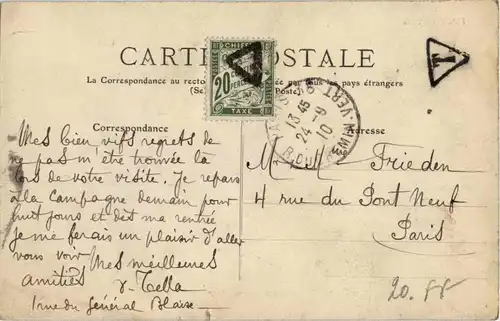 CARTE POSTALE
La Correspondance au recto pas par tous les pays étrangers
Poste)
CHIFFRE
20
A PERCEVOIR
TAXE
T
T
13 45
24 -9
10
R. DU CHEMIN-VERT
Correspondance
Adresse
Mes bien vifs regrets de
ne pas m'être trouvée là
lors de votre visite. Je repars
à la Campagne demain pour
huit jours et dès ma rentrée
je me ferais un plaisir d'aller
vous voir Mes meilleures
amitiés
Tella
1 rue du Général Blaise
M. et Mme Frieden
4 rue du Pont Neuf
Paris
20.